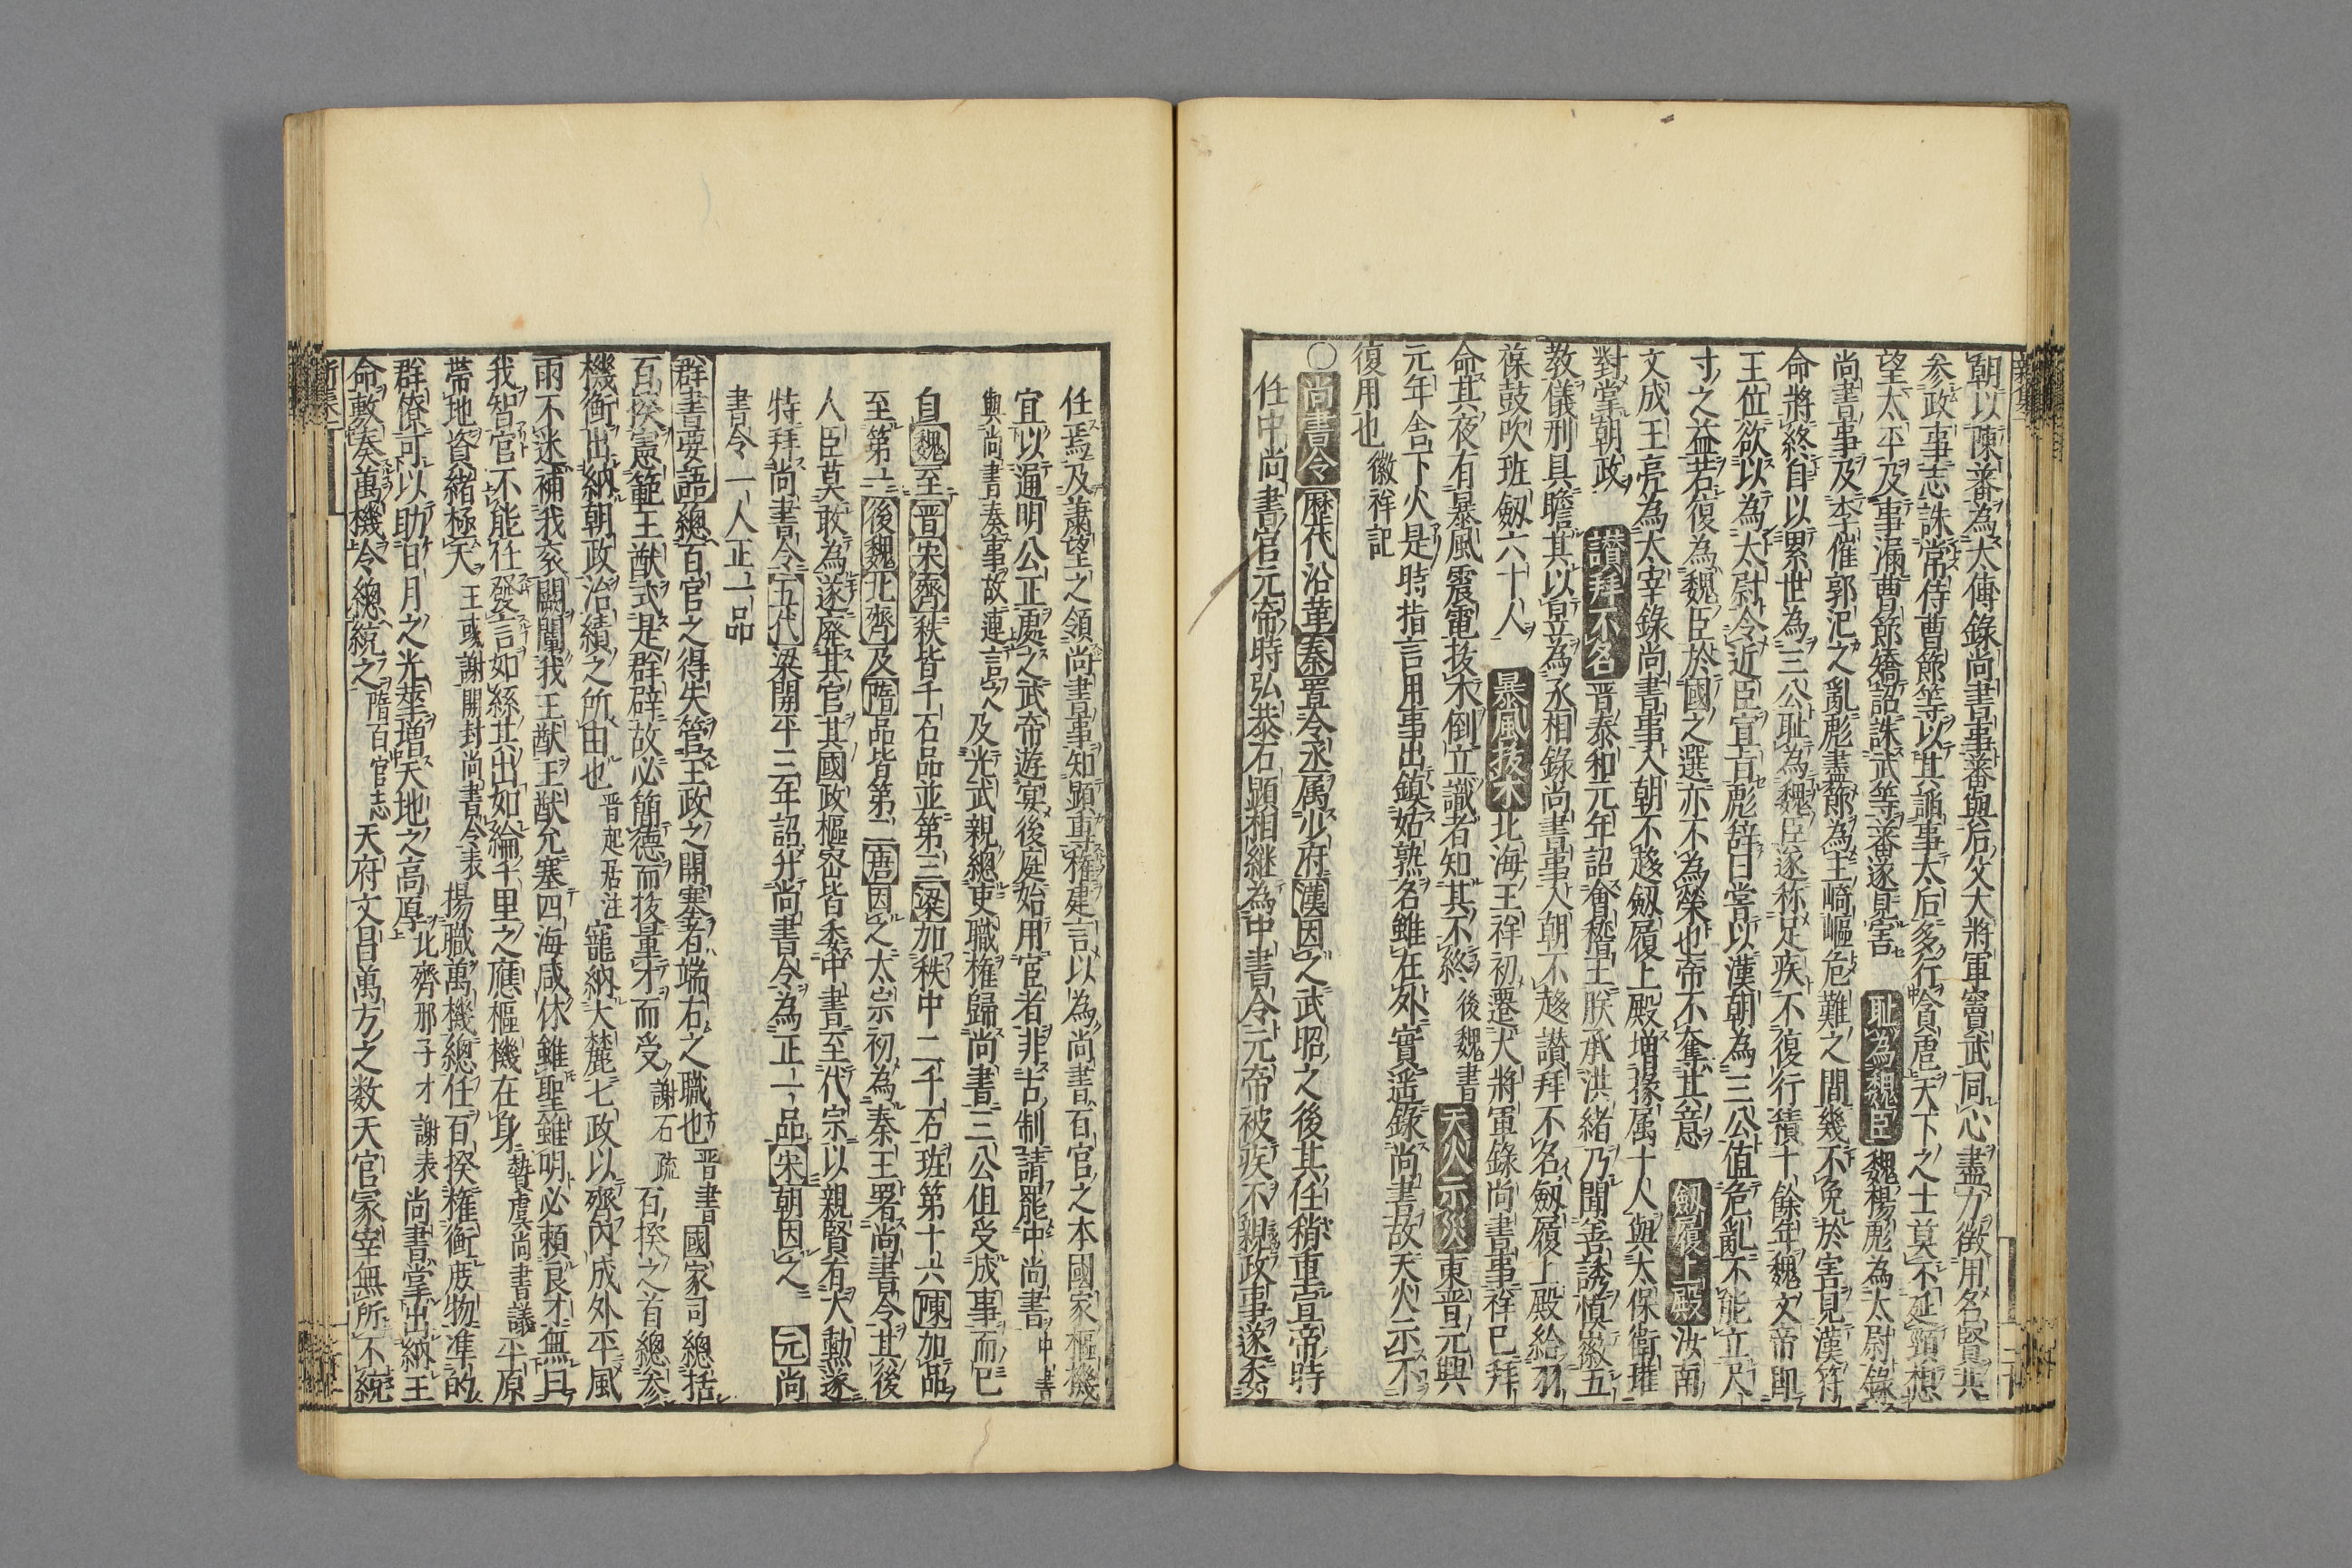 朝以陳蕃為太傅錄尚書事蕃與后父大將軍竇武同心盡力徵用名賢共
參政事志誅常侍曹節等以其諂事太后多行貪虐天下之士莫不延頸想
望太平及事漏曹節矯詔誅武等蕃遂見害 耻為魏臣 魏楊彪為太尉錄
尚書事及李傕郭汜之亂彪盡節為主崎嶇危難之間幾不免於害見漢符
命將終自以累世為三公耻為魏臣遂称足疾不復行積十餘年魏文帝即
王位欲以為太尉令近臣宣言彪辞曰嘗以漢朝為三公值危亂不能立尺
寸之益若復為魏臣於國之選亦不為榮也帝不奪其意 劔履上殿 汝南
文成王亮為太宰錄尚書事入朝不趍劔履上殿增掾属十人與太保衛瓘
對掌朝政 讃拜不名 晋泰和元年詔會稽王朕承洪緒乃聞善誘慎徽五
教儀刑具瞻其以昱為丞相錄尚書事入朝不趍讃拜不名劔履上殿給羽
葆鼓吹班劔六十人 暴風抜木 北海王祥初遷大將軍錄尚書事祥已拜
命其夜有暴風震電抜木倒立識者知其不終後魏書 天火示災 東晋元興
元年舍下火是時指言用事出鎮姑熟名雖在外實遥錄尚書故天火示不
復用也徽祥記
○尚書令 歷代沿革 秦置令丞属少府漢因之武昭之後其任稍重宣帝時
任中尚書官元帝時弘恭石顕相継為中書令元帝被疾不親政事遂委
任焉及蕭望之領尚書事知顕專權建言以為尚書百官之本國家樞機
宜以通明公正處之武帝遊宴後庭始用宦者非古制請罷中尚書中書
與尚書奏事故連言之及光武親總吏職權歸尚書三公但受成事而已
自魏至晋宋齊秩皆千石品並第三梁加秩中二千石班第十六陳加品
至第一後魏北齊及隋品皆第二唐因之太宗初為秦王署尚書令其後
人臣莫敢為遂廃其官其國政樞宻皆委中書至代宗以親賢有大勳遂
特拜尚書令五代梁開平三年詔升尚書令為正一品宋朝因之 元尚
書令一人正一品
群書要語總百官之得失管王政之開塞者端右之職也晋書國家司總括
百揆憲範王猷式是群辟故必簡德而授量才而受謝石疏百揆之首總参
機衡出納朝政治績之所由也晋起居注寵納大麓七政以齊内成外平風
雨不迷補我衮闕闡我王猷王猷允塞四海咸休雖聖雖明必頼良才無曰
我智官不能任發言如絲其出如綸千里之應樞機在身摯虞尚書議平原
帯地資緒極天王彧謝開封尚書令表揚職萬機總任百揆權衡庶物準的
群僚可以助日月之光塋増天地之高厚北齊邢子才謝表尚書掌出納王
命敷奏萬機令總統之隋百官志天府文昌萬方之数天官冢宰無所不統